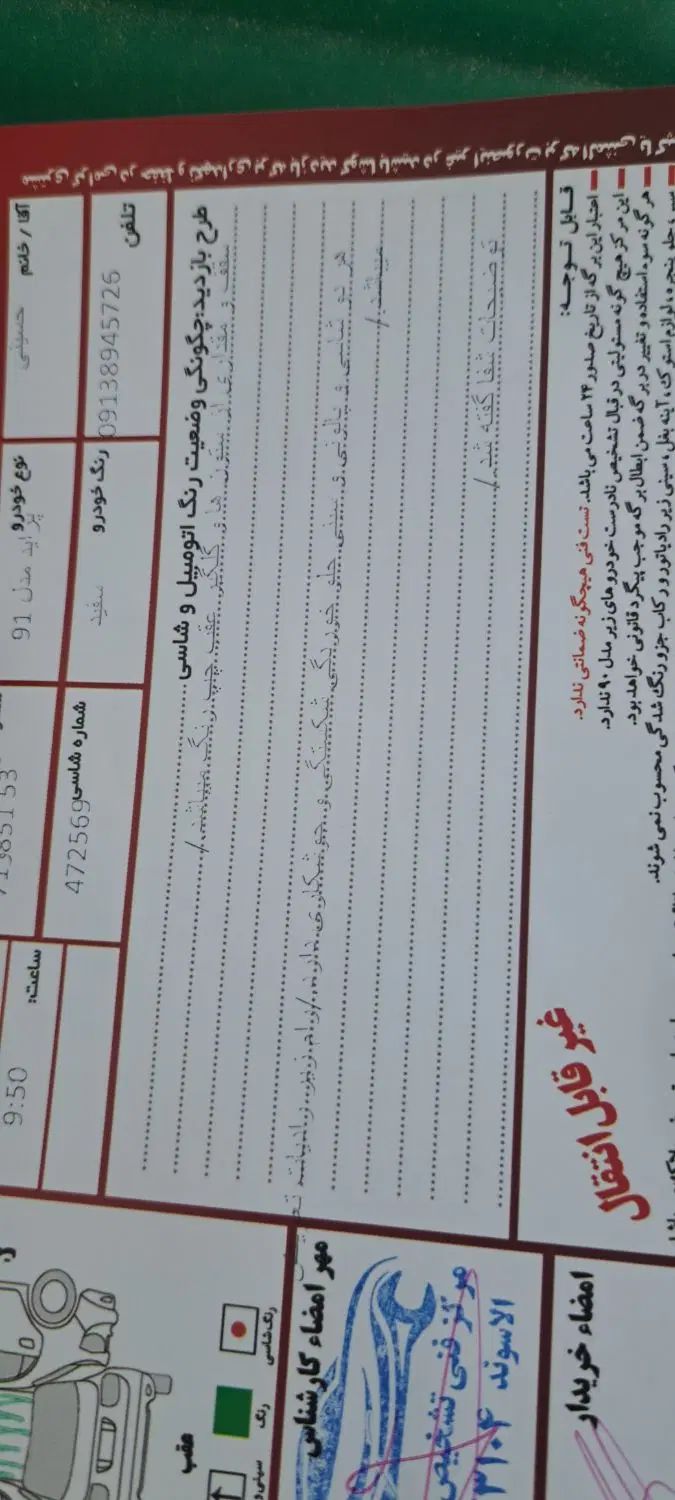 آقا / خانم
حسینی
تلفن
09138945726
نوع خودرو
پراید مدل 91
رنگ خودرو
سفید
شماره شاسی
472569
ساعت:
9:50
طرح بازدید:چگونگی وضعیت رنگ اتومبیل و شاسی
سقف و مقداری از ستون ها و گلگیر عقب چپ رنگ میباشد./
هر دو شاسی و پالونی و سینی جلو خوردگی شکستگی و جوشکاری دارد./رام زیر رادیات تعویض
میباشد./
توضیحات شفا گفته شد./
قابل توجه:
اعتبار این برگه از تاریخ صدور ۲۴ ساعت می باشد. تست فنی هیچگونه ضمانتی ندارد.
این مرکز هیچ گونه مسئولیتی در قبال تشخیص نادرست خودرو های زیر مدل ۹۰ ندارد.
هر گونه سوء استفاده و تغییر در برگه ضمن ابطال برگه موجب پیگرد قانونی خواهد بود.
آینه بغل، سینی زیر رادیاتور و رکاب جزو رنگ شدگی محسوب نمی شوند.
غیر قابل انتقال
عقب
رنگ شاسی
رنگ
مهر امضاء کارشناس
مرکز فنی تشخیص
الاسوند ۳۱۰۴
امضاء خریدار